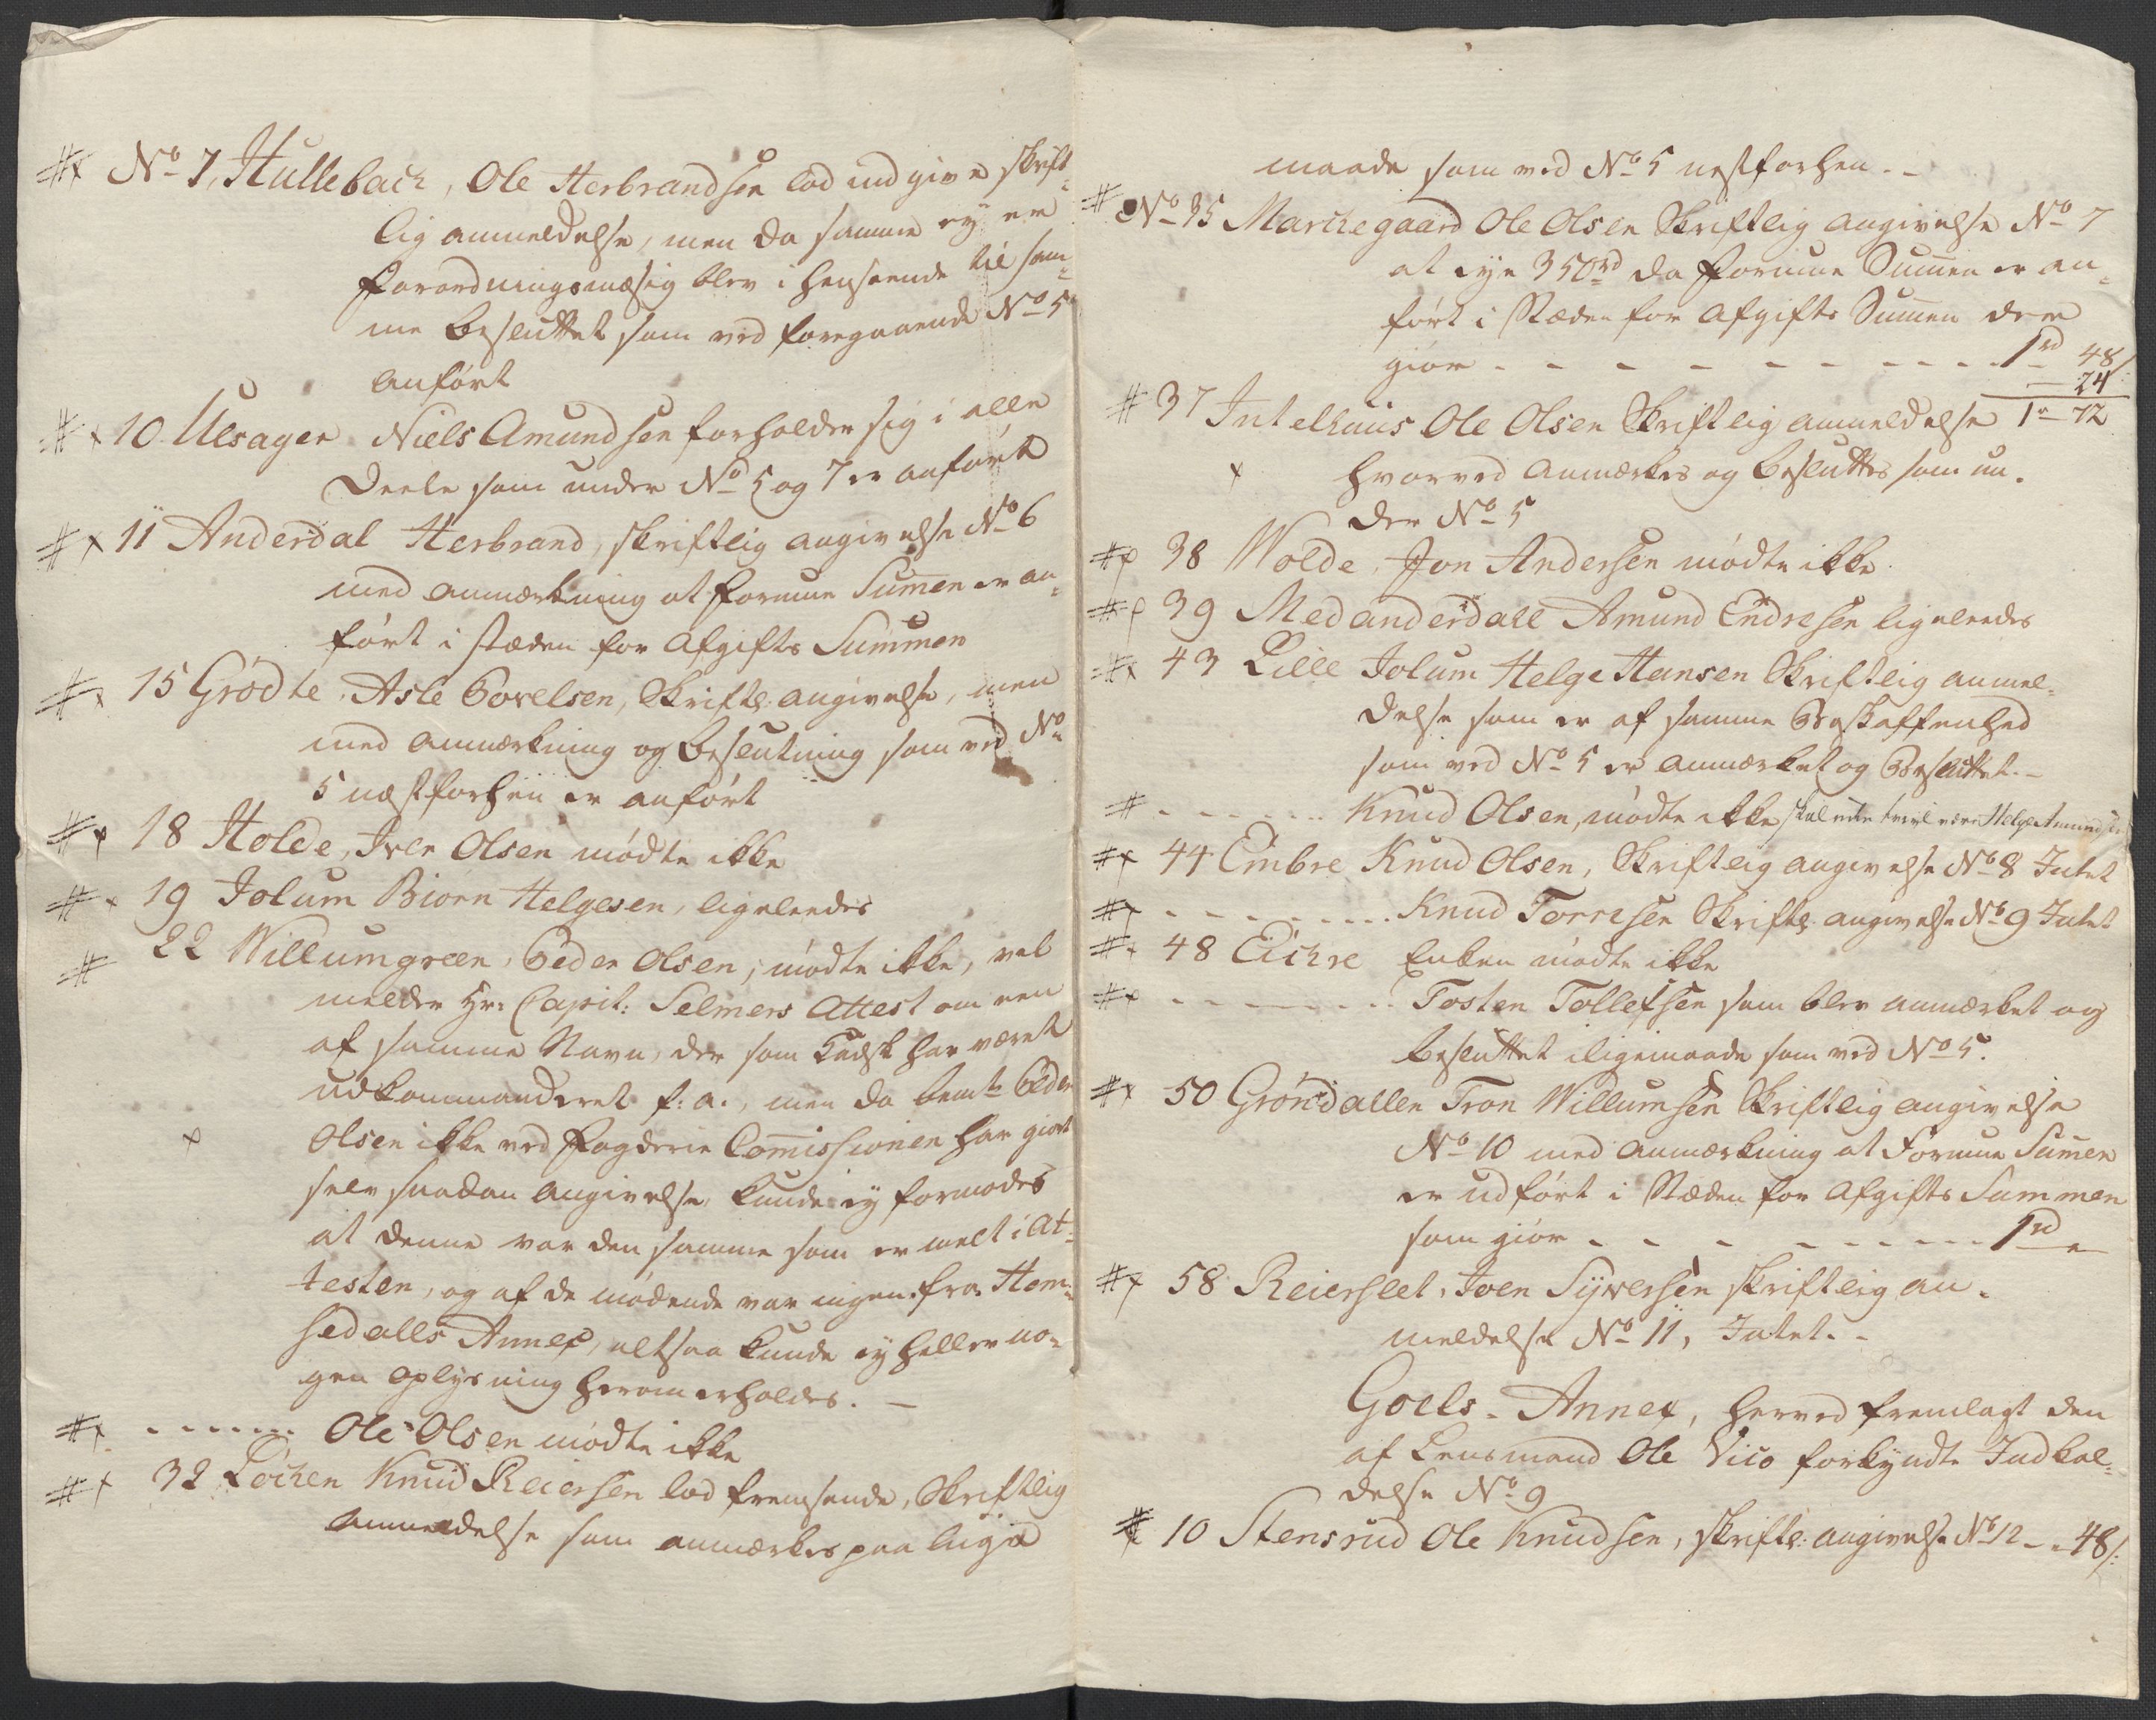 No 7, Hullebach, Ole Herbrandsen lod indgive skrift-
lig anmeldelse, men da samme ey er
forordningsmæsig blev i henseende til sam-
me besluttet som ved foregaaende No 5
anført
10 Ulsager Niels Amundsen forholder sig i alle
Deele som under No 5 og 7 er anført
11 Anderdal Herbrand, skriftlig angivelse No 6
med anmærkning at formue Summen er an-
ført i stæden for Afgifts Summen
15 Grødte, Asle Povelsen, Skriftl: angivelse, men
med anmærkning og beslutning som ved No
5 næstforhen er anført
18 Holde, Iver Olsen mødte ikke
19 Jolum Biørn Helgesen, ligeleedes
22 Willumgreen, Peder Olsen, mødte ikke, vel
melder Hr: Capit: Selmers Attest om een
af samme Navn, der som Kudsk har været
udkommanderet f: a:, men da bemte Peder
Olsen ikke ved Fogderie Comissionen har giort
selv saadan angivelse, kunde ey formodes
at denne var den samme som er melt i At-
testen, og af de mødende var ingen fra Hem-
sedalls Annex, altsaa kunde ey heller no-
gen oplysning herom erholdes. –
------ Ole Olsen mødte ikke
32 Løchen Knud Reiersen lod fremsende, Skriftlig
anmeldelse som anmærkes paa lige
maade som ved No 5 nestforhen. –
No 35 Marchegaard Ole Olsen Skriftlig angivelse No 7
at eye 350 rd da formue Summen er an-
ført i Stæden for Afgifts Summen der
giør - - - - - - - - - 1 rd 48 /:
– 24
37 Intelhuus Ole Olsen Skriftlig anmeldelse 1 – 72
hvorved anmærkes og besluttes som un-
der No 5
38 Wolde, Jon Andersen mødte ikke
39 Medanderdall Amund Endresen ligeleedes
43 Lille Jolum Helge Hansen Skriftlig anmel-
delse som er af samme Beskaffenhed
som ved No 5 er anmærket og Besluttet. –
------ Knud Olsen, mødte ikke skal uden tvivl være Helge Amundsen
44 Embre Knud Olsen, Skriftlig angivelse No 8 Intet
-------- Knud Torresen Skriftl: angivelse No 9 Intet
48 Eichre Enken mødte ikke
-------- Tosten Tollefsen som blev anmærket og
besluttet i ligemaade som ved No 5.
50 Grøndallen Tron Willumsen Skriftlig angivelse
No 10 med anmærkning at Formue Sumen
er udført i Stæden for Afgifts Summen
som giør - - - - - - - - 1 rd –
58 Reierslet, Joen Sywersen skriftlig an-
meldelse No 11, Intet. –
Goels - Annex, herved fremlagt den
af Lensmand Ole Vico forkyndte Indkal-
delse No 9
10 Stensrud Ole Knudsen, skriftl: angivelse No 12 – – 48 /: